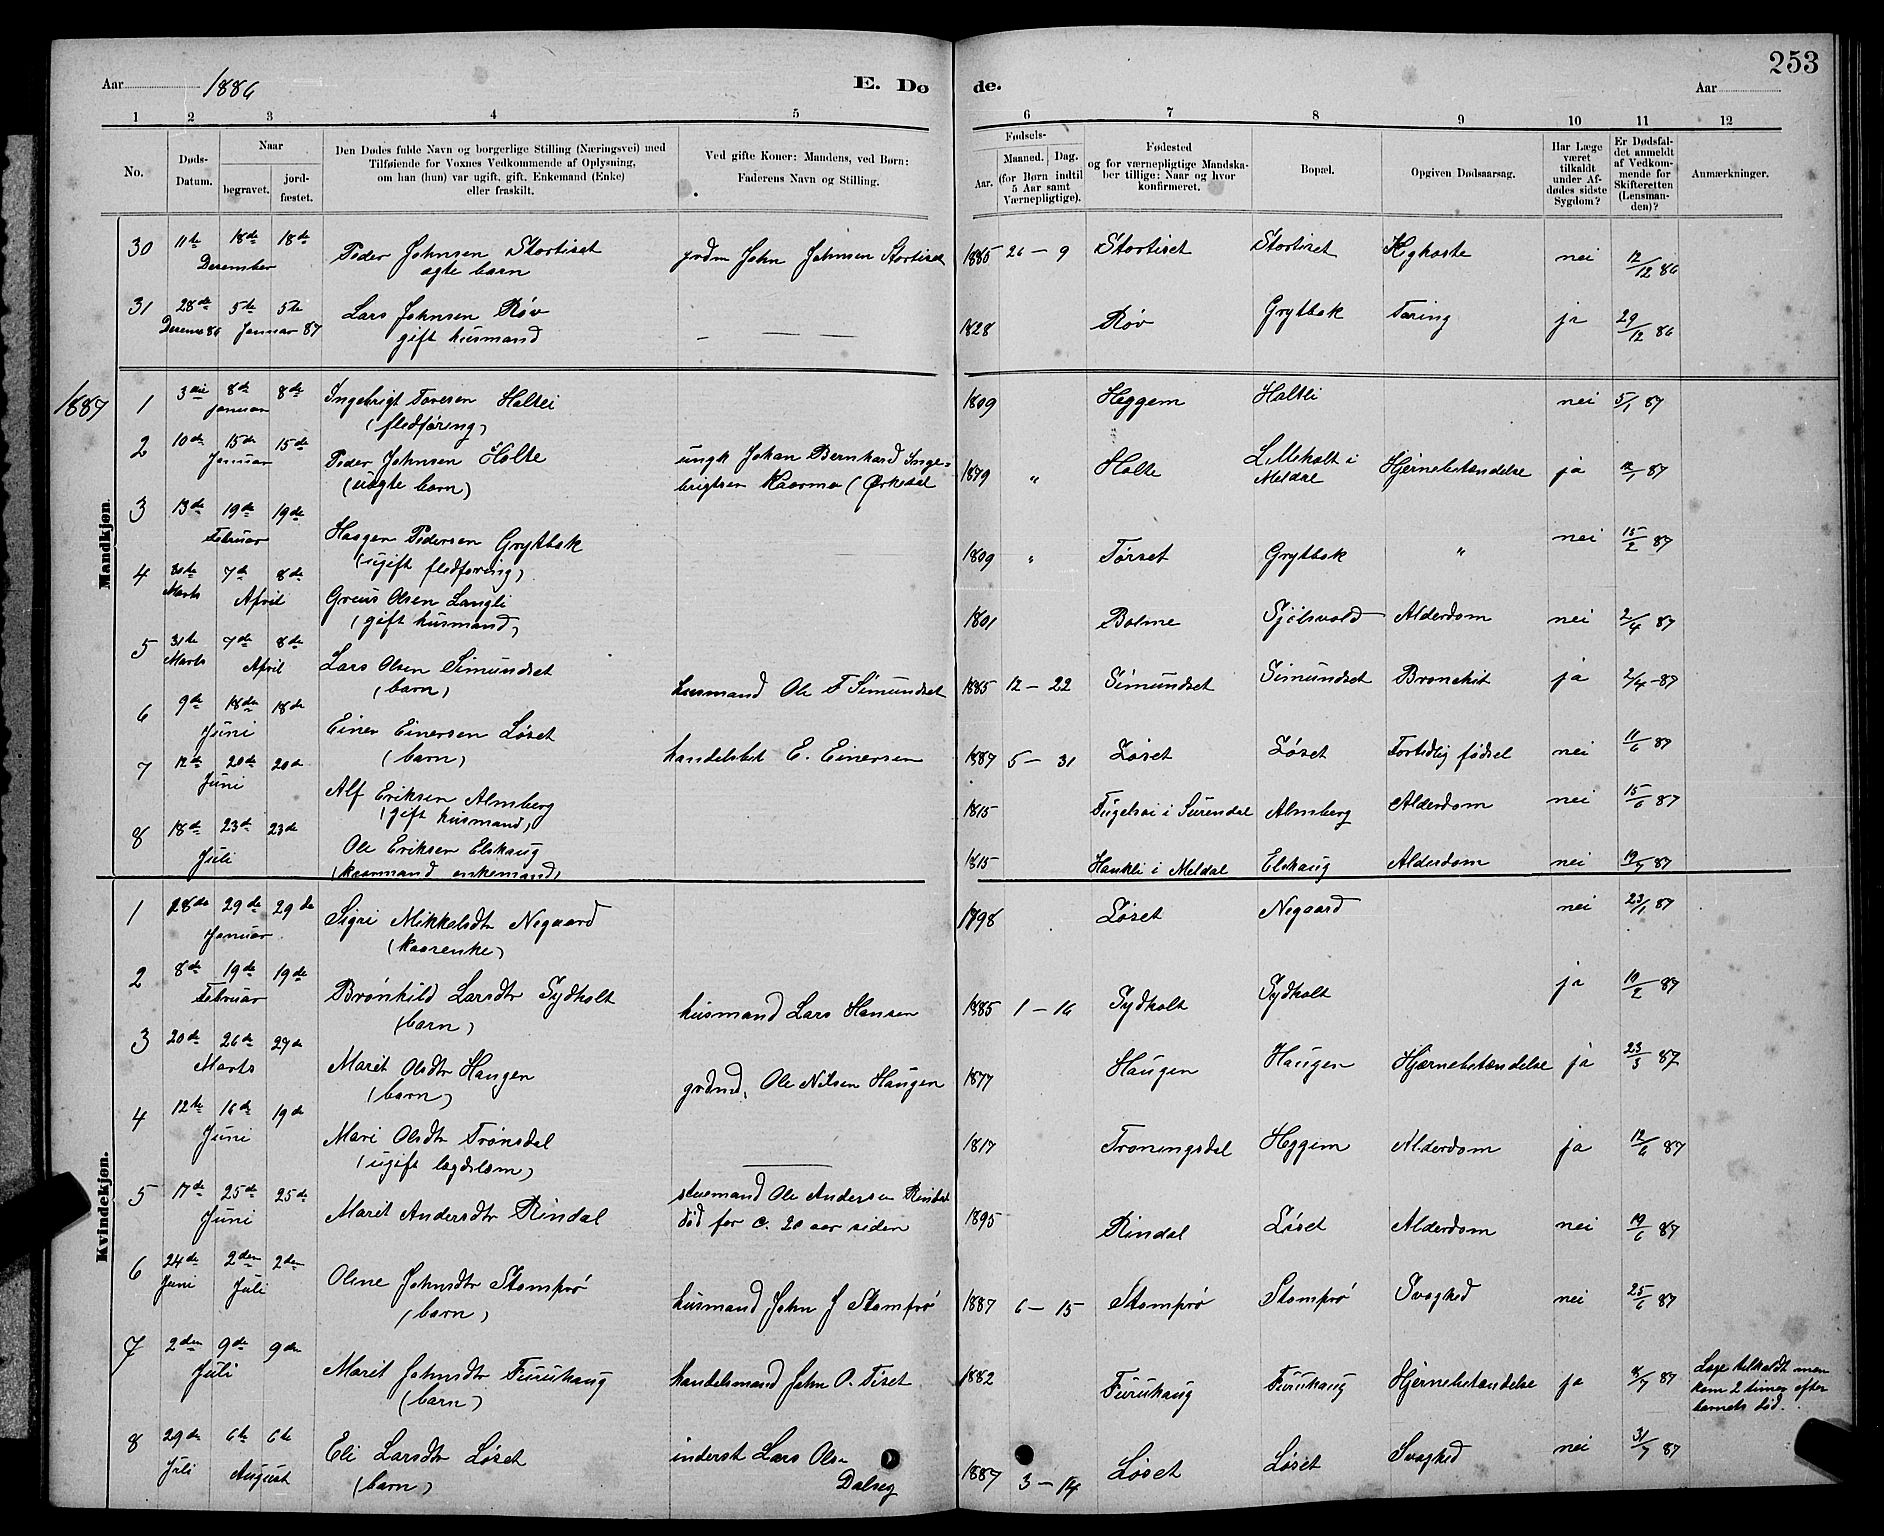 253
Aar 1886 E. Døde. Aar
1 2 3 4 5 6 7 8 9 10 11 12
No. Døds-Datum. Naar begravet. jordfæstet. Den Dødes fulde Navn og borgerlige Stilling (Næringsvei) med Tilføiende for Voxnes Vedkommende af Oplysning, om han (hun) var ugift, gift, Enkemand (Enke) eller fraskilt. Ved gifte Koner: Mandens, ved Børn: Faderens Navn og Stilling. Fødsels- Aar. Maaned. Dag. (for Børn indtil 5 Aar samt Værnepligtige). Fødested og for værnepligtige Mandskaber tillige: Naar og hvor konfirmeret. Bopæl. Opgiven Dødsaarsag. Har Læge været tilkaldt under Afdødes sidste Sygdom? Er Dødsfaldet anmeldt af Vedkommende for Skifteretten (Lensmanden)? Anmærkninger.
30 11te 18de 18de December Peder Johnsen Stortiset ægte barn grdm John Johnsen Stortiset 1885 26 – 9 Stortiset Stortiset Kighoste nei 12/12 86
31 28de Decemb 86 5te 5te Januar 87 Lars Johnsen Røv gift husmand – — — 1828 Røv Grytbak Tæring ja 29/12 86
1887
Mandkjøn.
1 3die 8de 8de Januar Ingebrigt Toresen Holtli (fledføring) 1809 Heggem Holtli nei 5/1 87
2 10de 15de 15de Januar Peder Johnsen Holte (uægte barn) ungk Johan Bernhard Ingebrigtsen Kaarmo (Ørkedal 1879 " Holte Lilleholt i Meldal Hjernebetændelse ja 12/1 87
3 13de 19de 19de Februar Haagen Pedersen Grytbak (ugift fledføring) 1809 " Tørset Grytbak " nei 15/2 87
4 30te Marts 7de 8de April Greus Olsen Langli (gift husmand) 1801 Bolme Sjölsvold Alderdom nei 2/4 87
5 31te Marts 7de 8de April Lars Olsen Simundset (barn) husmand Ole T Simundset 1885 12 – 22 Simundset Simundset Bronchit ja 2/4 – 87
6 9de 18de 18de Juni Einer Einersen Løset (barn) handelsbet E. Einersen 1887 5 – 31 Løset Løset Fortidlig fødsel nei 11/6 87
7 12te 20de 20de Juni Alf Eriksen Almberg (gift husmand) 1815 Fugelsøi i Surendal Almberg Alderdom nei 15/6 87
8 18de 23de 23de Juli Ole Eriksen Elshaug (kaarmand enkemand) 1815 Haukli i Meldal Elshaug Alderdom nei 19/7 87
Kvindekjøn.
1 28de 29de 29de Januar Sigri Mikkelsdtr Negaard (kaarenke) 1798 Løset Negaard nei 23/1 87
2 8de 19de 19de Februar Brønhild Larsdtr Sydholt (barn) husmand Lars Hansen 1885 1 – 16 Sydholt Sydholt ja 10/2 87
3 20de 26de 27de Marts Marit Olsdtr Haugen (barn) grdmd, Ole Nilsen Haugen 1877 Haugen Haugen Hjernebetændelse ja 23/3 87
4 12te 16de 19de Juni Mari Olsdtr Trønsdal (ugift lægdslem) 1817 Troningsdal Heggem Alderdom ja 12/6 87
5 17de 25de 25de Juni Marit Andersdtr Rindal stuemand Ole Andersen Rindal død for c. 20 aar siden 1895 Rindal Løset Alderdom nei 19/6 87
6 24de Juni 2den 2den Juli Oline Johnsdtr Stomprø (barn) husmand John J Stomprø 1887 6 – 15 Stomprø Stomprø Svaghed nei 25/6 87
7 2den 9de 9de Juli Marit Johnsdtr Furuhaug (barn) handelsmand John O. Tiset 1882 Furuhaug Furuhaug Hjernebetændelse ja 8/7 87 Læge tilkaldt men kom 2 timer efter barnets død.
8 29de Juli 6te 6te August Eli Larsdtr Løset (barn) inderst Lars Olsen Dalseg 1887 3 – 14 Løset Løset Svaghed nei 31/7 87